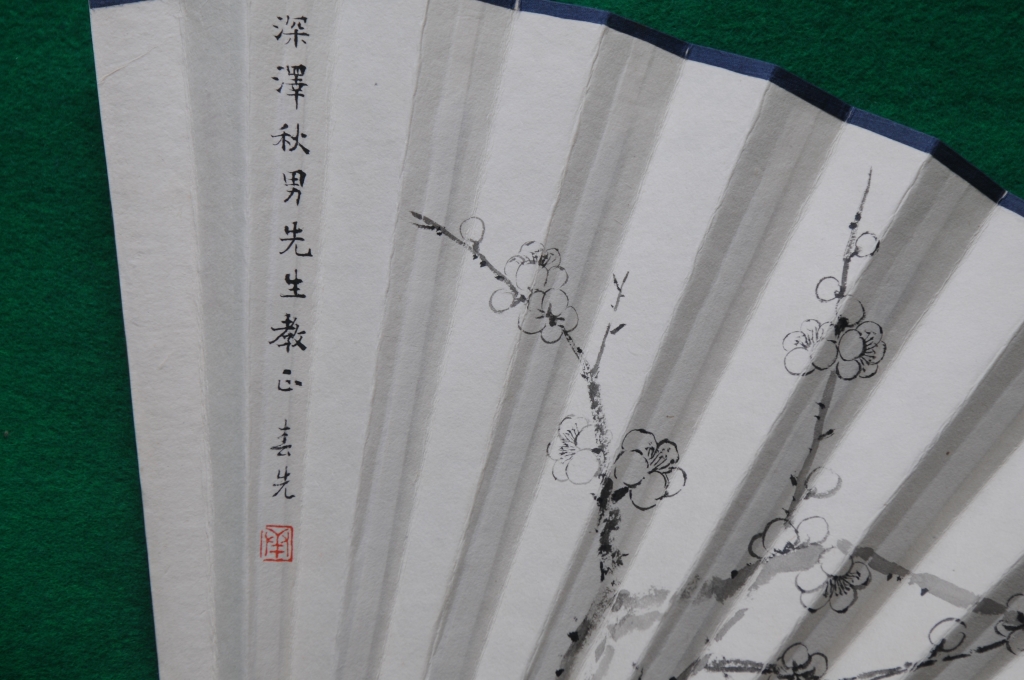 深澤秋男先生教正 春先